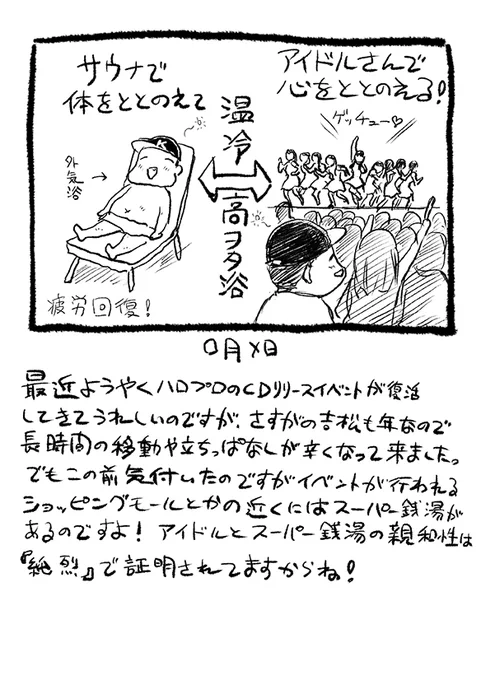 サウナで
体をととのえて
アイドルさんで
心をととのえる!
ゲッチュー♡
外気浴
→
温冷
高ヲタ浴
K
疲労回復!
〇月×日
最近ようやくハロプロのCDリリースイベントが復活
してきてうれしいのですが、さすがの吉松も年なので
長時間の移動や立ちっぱなしが辛くなって来ました。
でもこの前気付いたのですがイベントが行われる
ショッピングモールとかの近くにはスーパー銭湯が
あるのですよ! アイドルとスーパー銭湯の親和性は
『絶烈』で証明されてますからね!